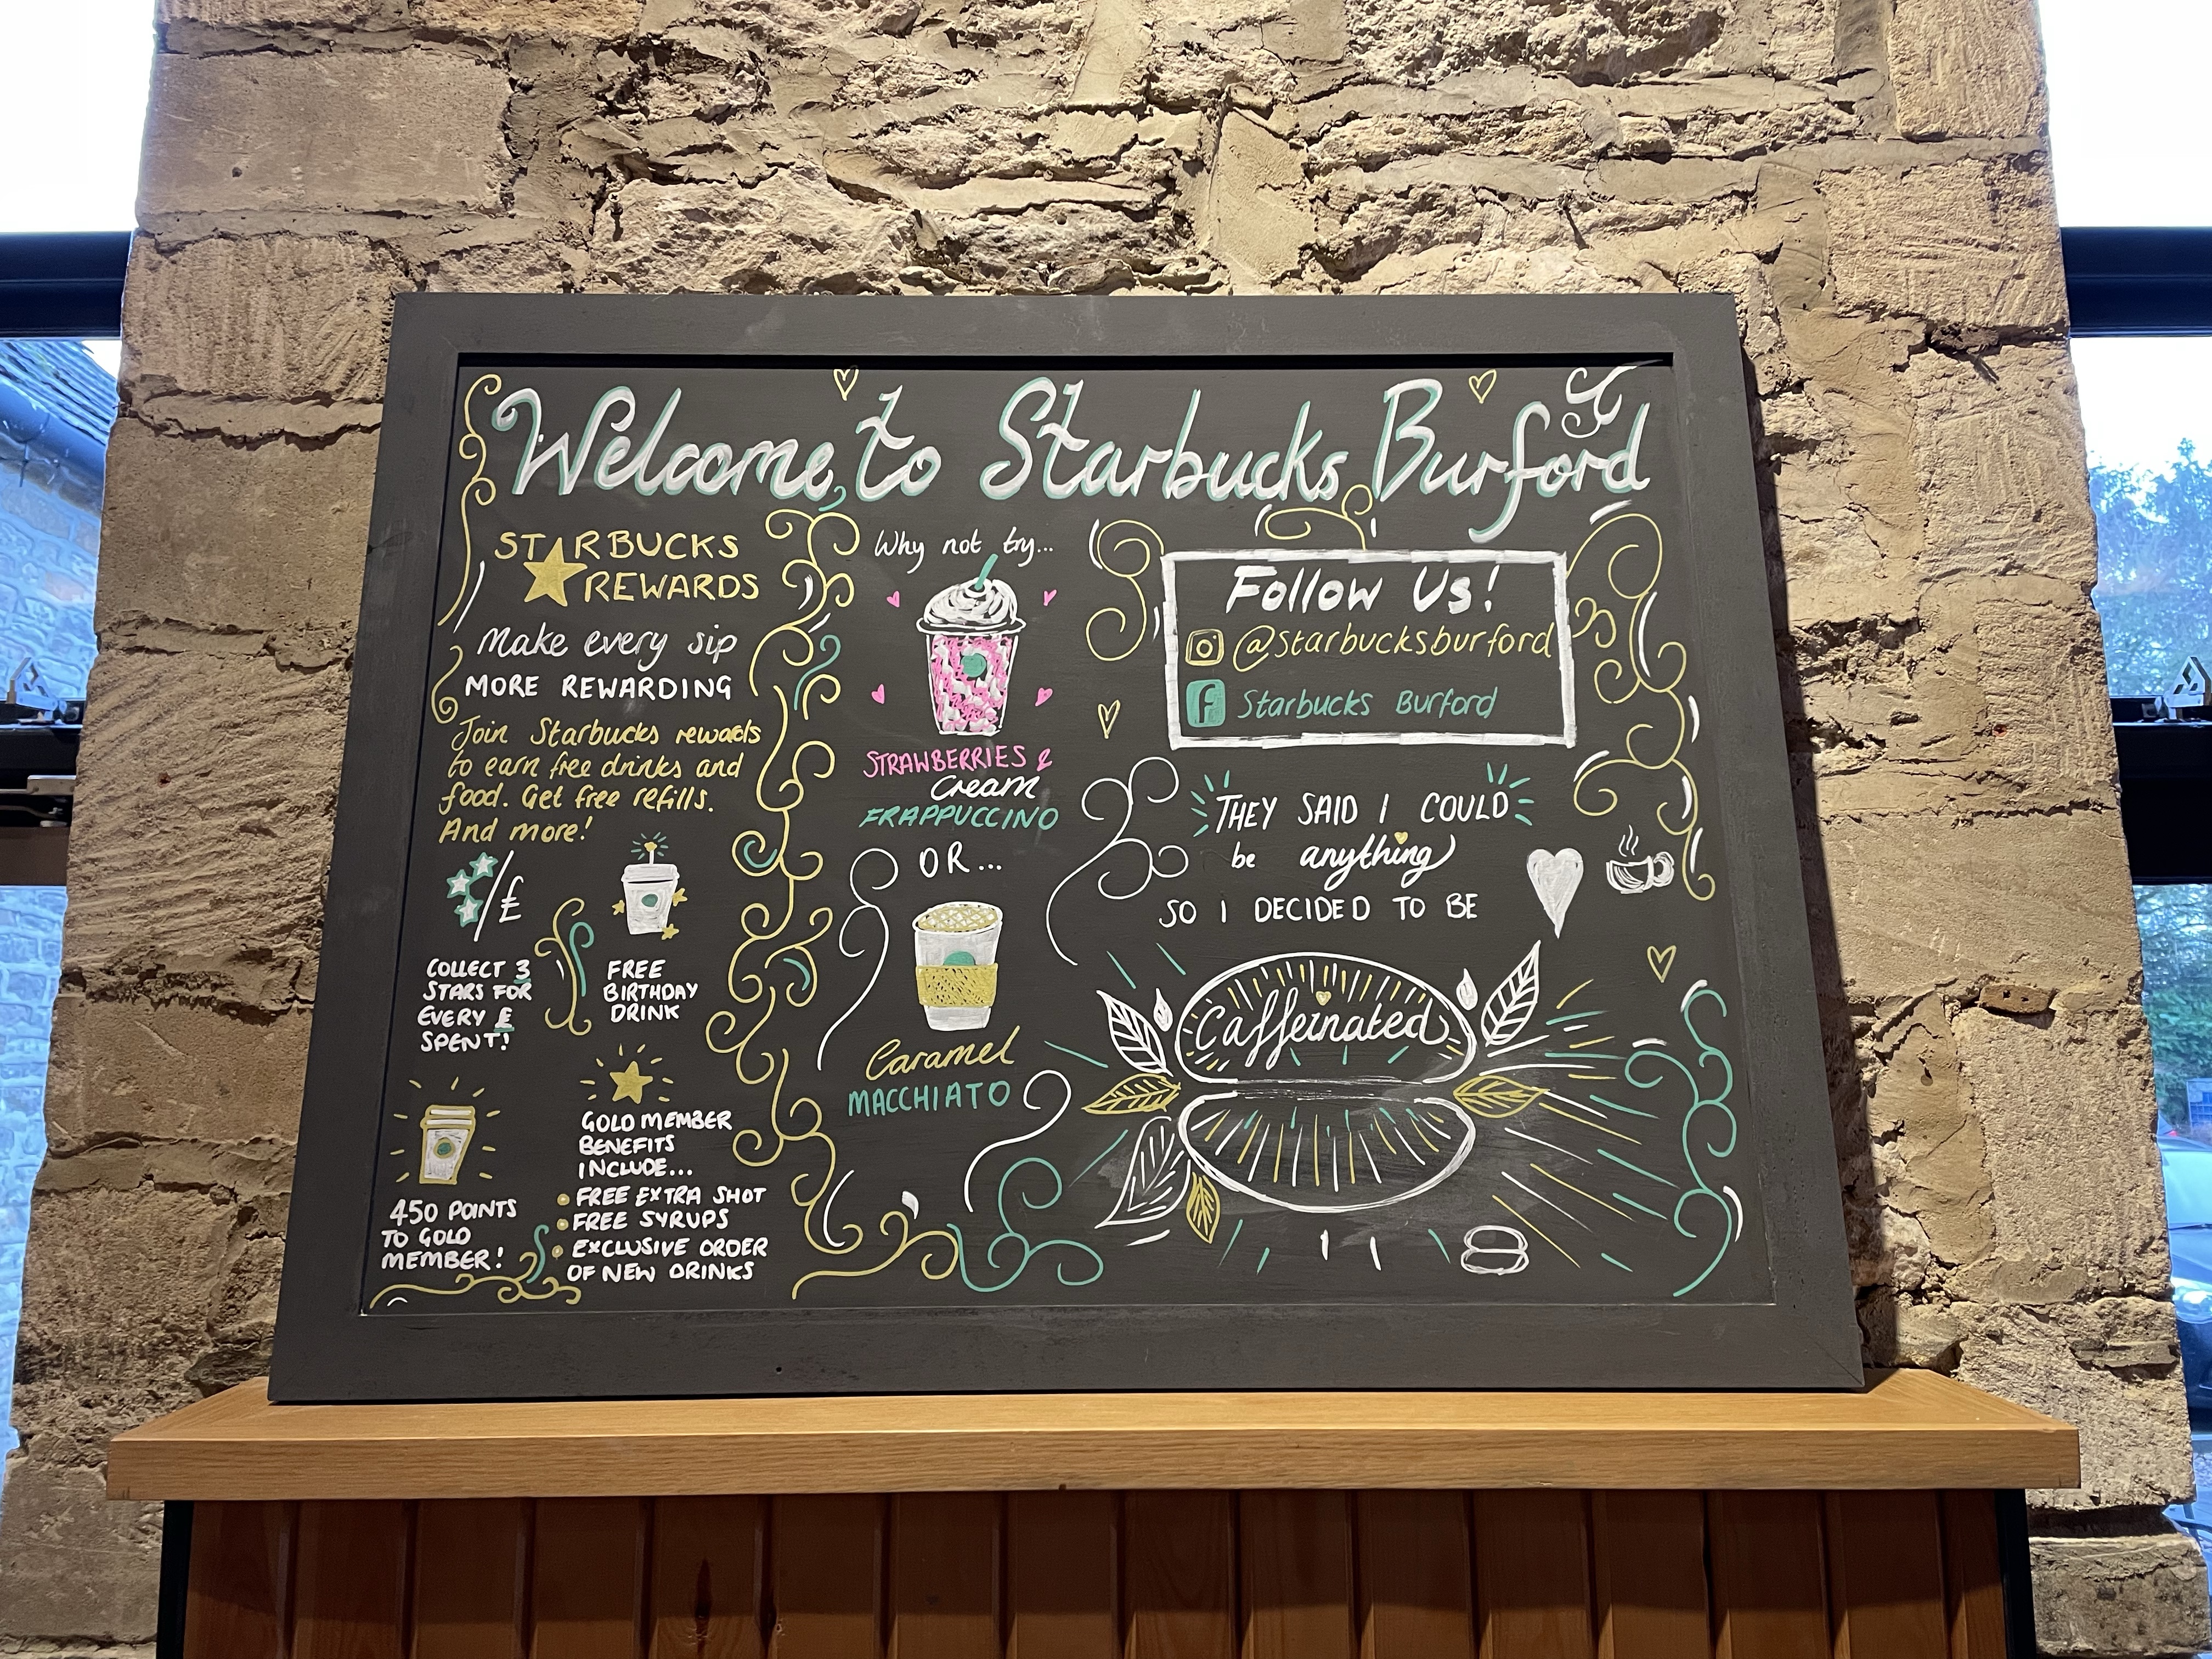 Welcome to Starbucks Burford
STARBUCKS
REWARDS
Make every sip
MORE REWARDING
Join Starbucks rewards
to earn free drinks and
food. Get free refills.
And more!
/£
COLLECT 3
STARS FOR
EVERY £
SPENT!
FREE
BIRTHDAY
DRINK
450 POINTS
TO GOLD
MEMBER!
GOLD MEMBER
BENEFITS
INCLUDE...
• FREE EXTRA SHOT
• FREE SYRUPS
• EXCLUSIVE ORDER
OF NEW DRINKS
Why not try...
STRAWBERRIES &
Cream
FRAPPUCCINO
OR...
Caramel
MACCHIATO
Follow Us!
@starbucksburford
f Starbucks Burford
THEY SAID I COULD
be anything
SO I DECIDED TO BE
Caffeinated